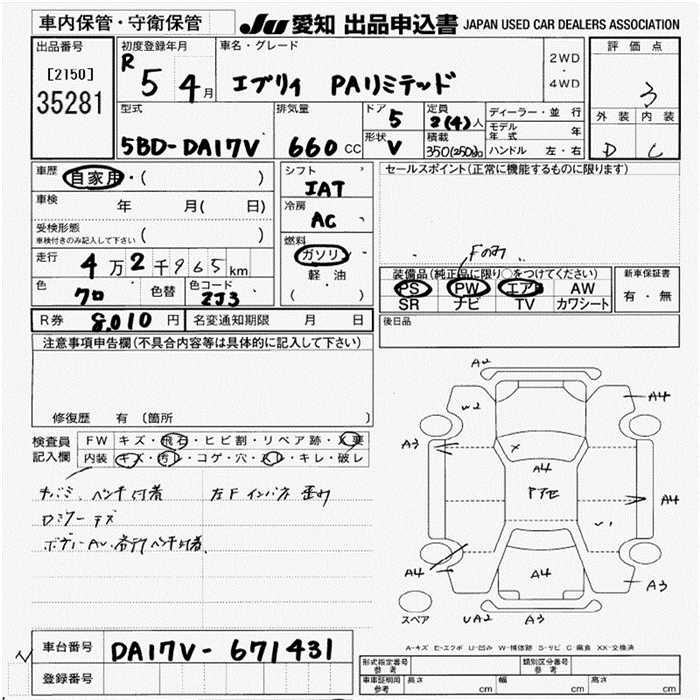 車内保管・守衛保管
JU 愛知 出品申込書 JAPAN USED CAR DEALERS ASSOCIATION
出品番号
[2150]
35281
初度登録年月
R 5 4月
車名・グレード
エブリイ PAリミテッド
2WD
・
4WD
評価点
3
外装 内装
D C
型式
5BD-DA17V
排気量
660 CC
ドア 5
形状 V
定員 2(4)人
積載 350(250)kg
ディーラー・並行
モデル年式 年
ハンドル 左・右
車歴 自家用・( )
車検 年 月( 日)
受検形態
車検付きのみ記入して下さい ( )
走行 4万2千965km
色 クロ 色替 色コード ZJ3
シフト
IAT
冷房
AC
燃料
ガソリン
軽油
( )
セールスポイント(正常に機能するものに限ります)
Fのみ
装備品(純正品に限り○をつけてください)
PS PW エアB AW
SR ナビ TV カワシート
新車保証書
有・無
R券 8,010円 名変通知期限 月 日
後日品
注意事項申告欄(不具合内容等は具体的に記入して下さい)
修復歴 有 〔箇所 〕
検査員
記入欄
FW キズ・飛石・ヒビ割・リペア跡・X要
内装 キズ・汚レ・コゲ・穴・スレ・キレ・破レ
ペンチ付着 左Fインパネ
キズ
A2
W2
A4
A3
X
A4
A4
A4
A4
A3
スペア
UA2
A3
A-キズ E-エクボ U-凹み W-補修跡 S-サビ C-腐食 XX-交換済
車台番号 DA17V-671431
登録番号
形式指定番号
参考
類別区分番号
車車証明用
参考
長さ cm 幅 cm 高さ cm